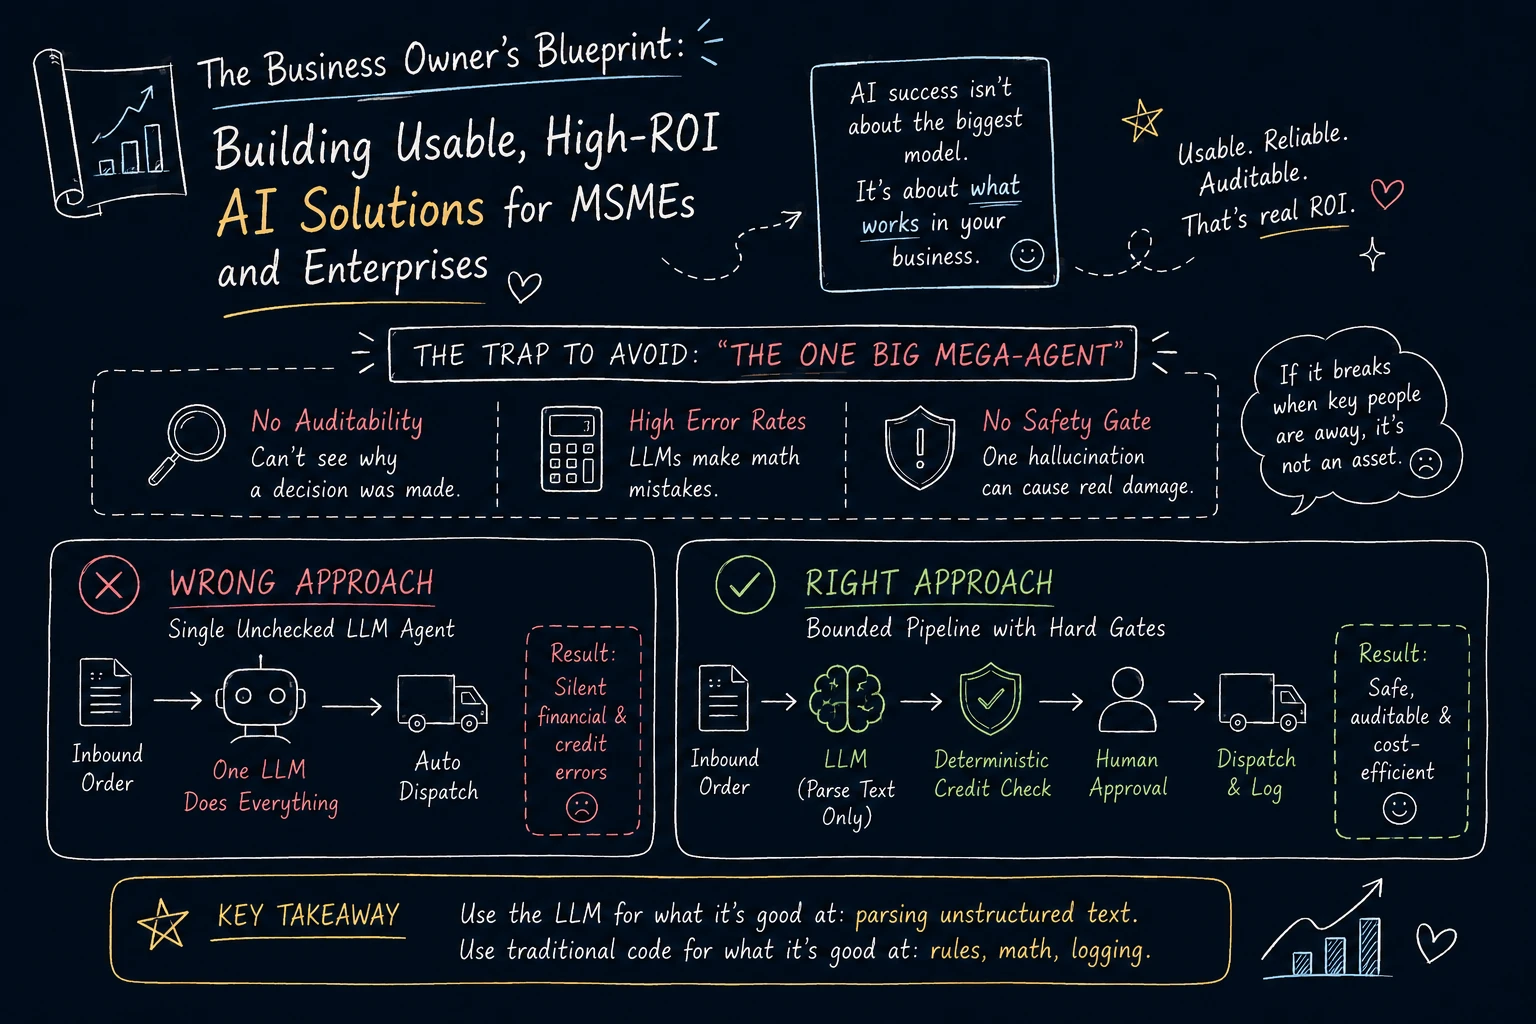 The Business Owner's Blueprint:
Building Usable, High-ROI
AI Solutions for MSMEs
and Enterprises
AI success isn't
about the biggest
model.
It's about what
works in your
business.
Usable. Reliable.
Auditable.
That's real ROI.
THE TRAP TO AVOID: "THE ONE BIG MEGA-AGENT"
No Auditability
Can't see why
a decision was made.
3
High Error Rates
LLMs make math
mistakes.
No Safety Gate
One hallucination
can cause real damage.
If it breaks
when key people
are away, it's
not an asset.
WRONG APPROACH
Single Unchecked LLM Agent
Inbound
Order
One LLM
Does Everything
Auto
Dispatch
Result:
Silent
financial &
credit
errors
RIGHT APPROACH
Bounded Pipeline with Hard Gates
Inbound
Order
LLM
(Parse Text
Only)
Deterministic
Credit Check
Human
Approval
Dispatch
& Log
Result:
Safe,
auditable &
cost-
efficient
KEY TAKEAWAY
Use the LLM for what it's good at: parsing unstructured text.
Use traditional code for what it's good at: rules, math, logging.